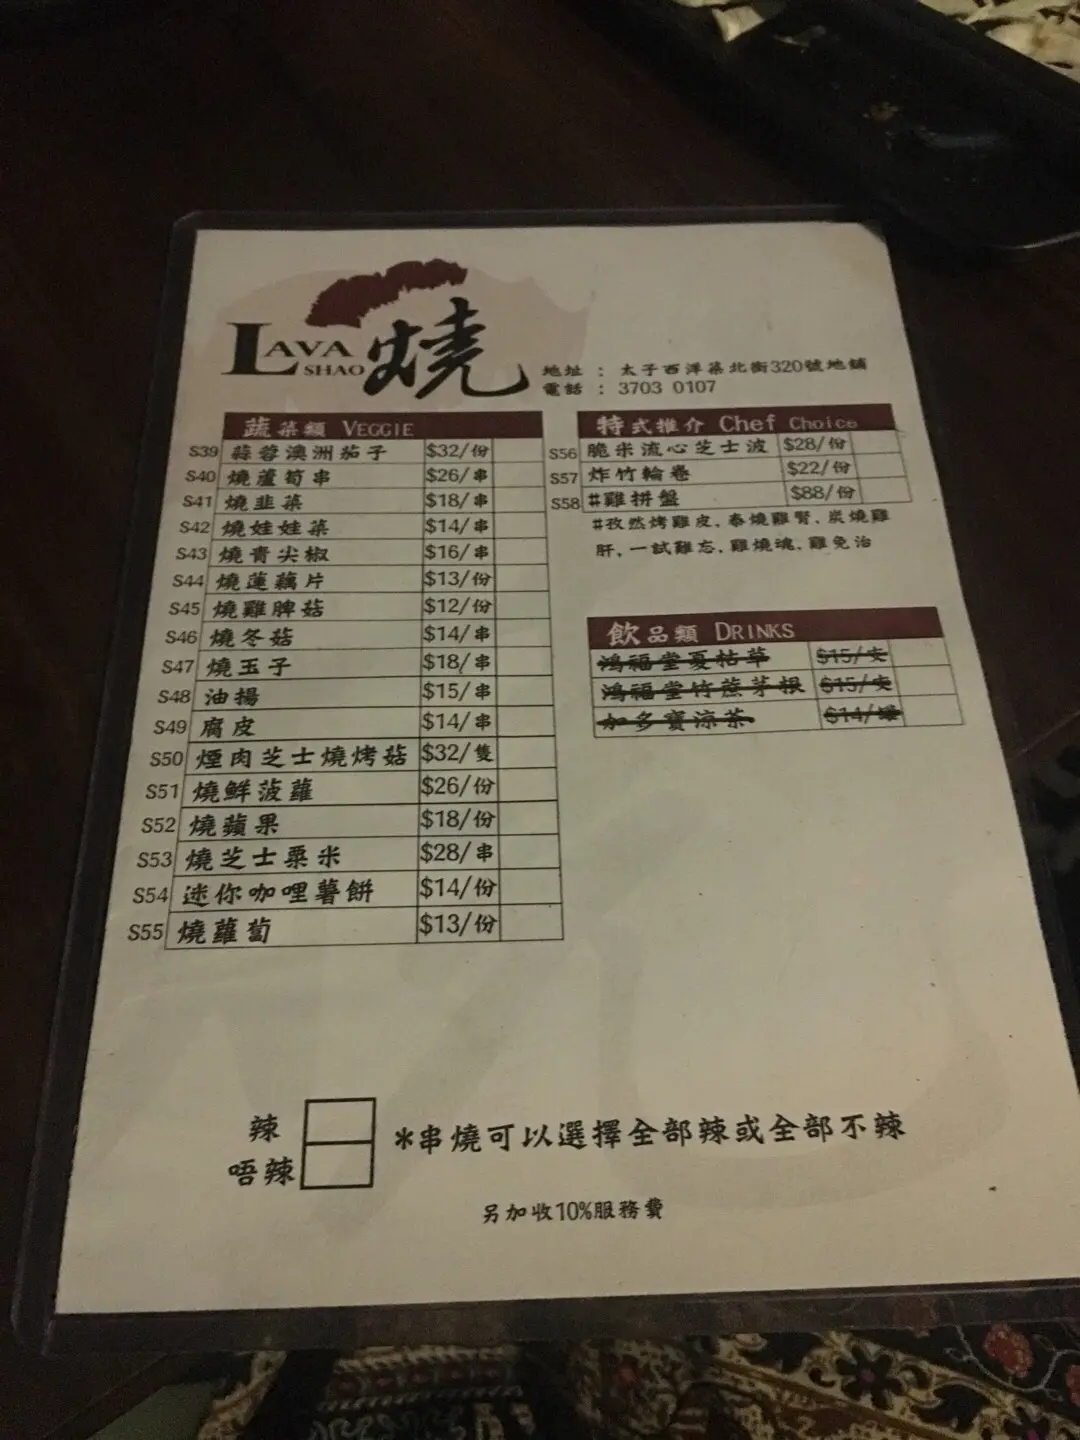 LAVA
SHAO
燒
地址 : 太子西洋菜北街320號地舖
電話 : 3703 0107
蔬菜類 VEGGIE
S39 蒜蓉澳洲茄子 $32/份
S40 燒蘆筍串 $26/串
S41 燒韭菜 $18/串
S42 燒娃娃菜 $14/串
S43 燒青尖椒 $16/串
S44 燒蓮藕片 $13/份
S45 燒雞脾菇 $12/份
S46 燒冬菇 $14/串
S47 燒玉子 $18/串
S48 油揚 $15/串
S49 腐皮 $14/串
S50 煙肉芝士燒烤菇 $32/隻
S51 燒鮮菠蘿 $26/份
S52 燒蘋果 $18/份
S53 燒芝士粟米 $28/串
S54 迷你咖哩薯餅 $14/份
S55 燒蘿蔔 $13/份
特式推介 Chef Choice
S56 脆米流心芝士波 $28/份
S57 炸竹輪卷 $22/份
S58 #雞拼盤 $88/份
#孜然烤雞皮, 泰燒雞腎, 炭燒雞
肝, 一試難忘, 雞燒魂, 雞免治
飲品類 DRINKS
鴻福堂夏枯草 $15/支
鴻福堂竹蔗茅根 $15/支
加多寶涼茶 $14/罐
辣
唔辣
*串燒可以選擇全部辣或全部不辣
另加收10%服務費